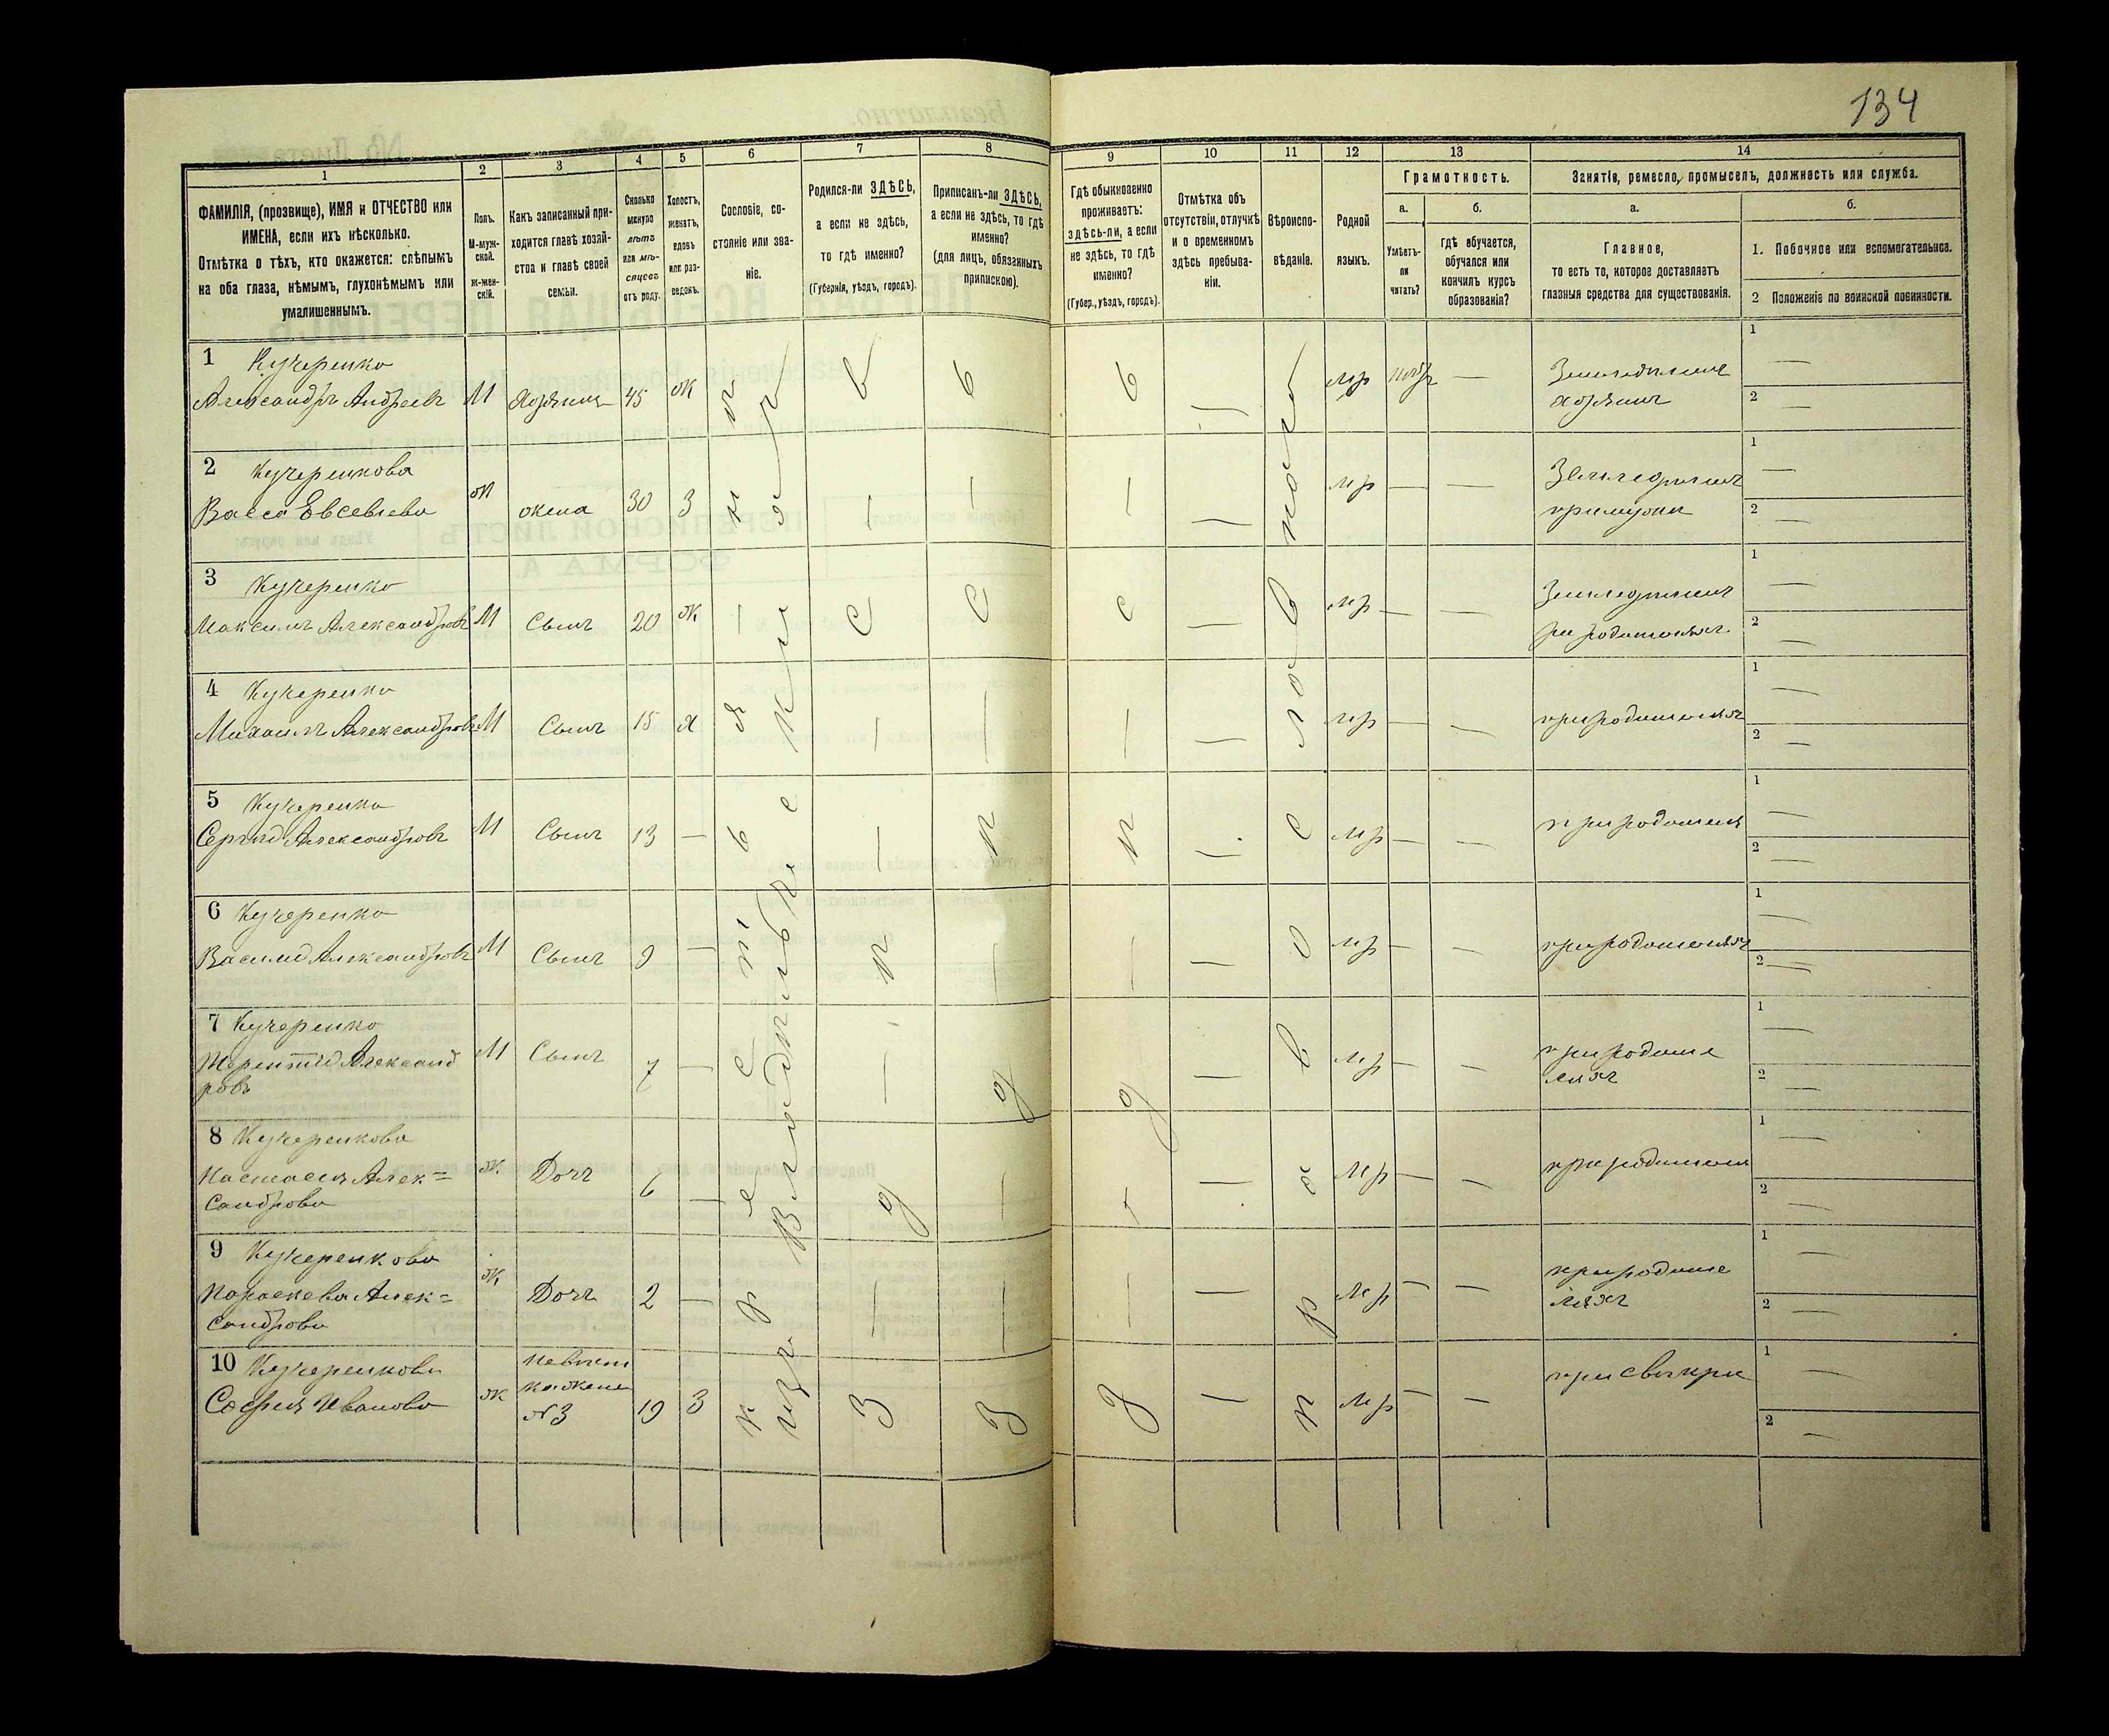 134
1
2
3
4
5
6
7
8
9
10
11
12
13
14
ФАМИЛІЯ, (прозвище), ИМЯ и ОТЧЕСТВО или
ИМЕНА, если ихъ нѣсколько.
Отмѣтка о тѣхъ, кто окажется: слѣпымъ
на оба глаза, нѣмымъ, глухонѣмымъ или
умалишеннымъ.
Полъ.
М-муж-
ской.
Ж-жен-
скій.
Какъ записанный при-
ходится главѣ хозяй-
ства и главѣ своей
семьи.
Сколько
минуло
лѣтъ
или мѣ-
сяцевъ
отъ роду.
Холостъ,
женатъ,
вдовъ
или раз-
веденъ.
Сословіе, со-
стояніе или зва-
ніе.
Родился-ли ЗДѢСЬ,
а если не здѣсь,
то гдѣ именно?
(Губернія, уѣздъ, городъ).
Приписанъ-ли ЗДѢСЬ,
а если не здѣсь, то гдѣ
именно?
(для лицъ, обязанныхъ
припискою).
Гдѣ обыкновенно
проживаетъ:
здѣсь-ли, а если
не здѣсь, то гдѣ
именно?
(Губер., уѣздъ, городъ).
Отмѣтка объ
отсутствіи, отлучкѣ
и о временномъ
здѣсь пребыва-
ніи.
Вѣроиспо-
вѣданіе.
Родной
языкъ.
Грамотность.
а.
Умѣетъ-
ли
читать?
б.
гдѣ обучается,
обучался или
кончилъ курсъ
образованія?
Занятіе, ремесло, промыселъ, должность или служба.
а.
Главное,
то есть то, которое доставляетъ
главныя средства для существованія.
б.
1. Побочное или вспомогательное.
2 Положеніе по воинской повинности.
1 Кучеренко
Александръ Андреевъ М Хозяинъ 45 Ж мр Земледѣлецъ
хозяинъ
2 Кучеренкова
Васса Евсевіева Ж жена 30 З мр — — Земледѣлецъ
при мужѣ
3 Кучеренко
Максимъ Александровъ М Сынъ 20 Ж мр — — Земледѣлецъ
при родителяхъ
4 Кучеренко
Михаилъ Александровъ М Сынъ 15 Х мр — — при родителяхъ
5 Кучеренко
Сергѣй Александровъ М Сынъ 13 — мр — — при родителя
6 Кучеренко
Василій Александровъ М Сынъ 9 — мр — — при родителяхъ
7 Кучеренко
Терентій Александ
ровъ М Сынъ 7 — мр — — при родите
ляхъ
8 Кучеренкова
Настасья Алек=
сандрова Ж Дочь 6 — мр — — при родителя
9 Кучеренкова
Параскева Алек=
сандрова Ж Дочь 2 — мр — — при родите
ляхъ
10 Кучеренкова
София Иванова Ж невѣст
ка жена
№3 19 З мр — — при свекрѣ
крестьянъ
Владѣльческихъ
здѣсь
здѣсь
здѣсь
православное